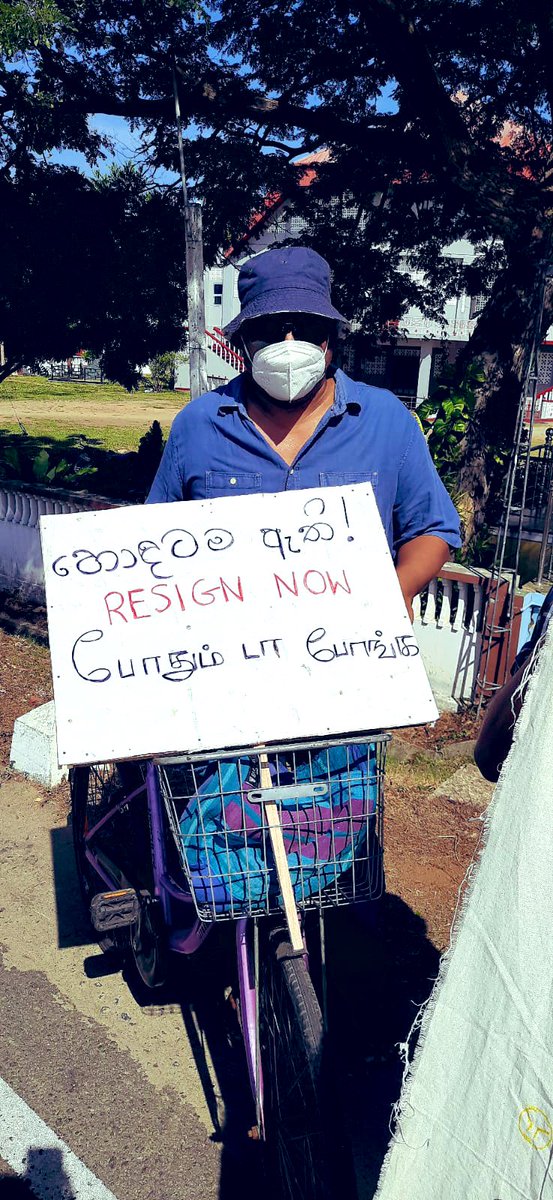 හොඳටම ඇති!
RESIGN NOW
போதும் டா போங்க